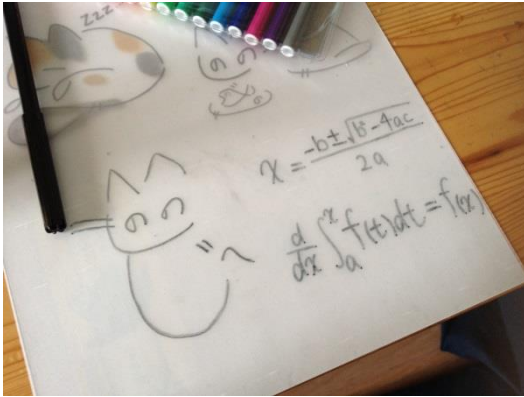 zzz
x = \frac{-b±\sqrt{b²-4ac}}{2a}
\frac{d}{dx} \int_{a}^{x} f(t)dt = f(x)